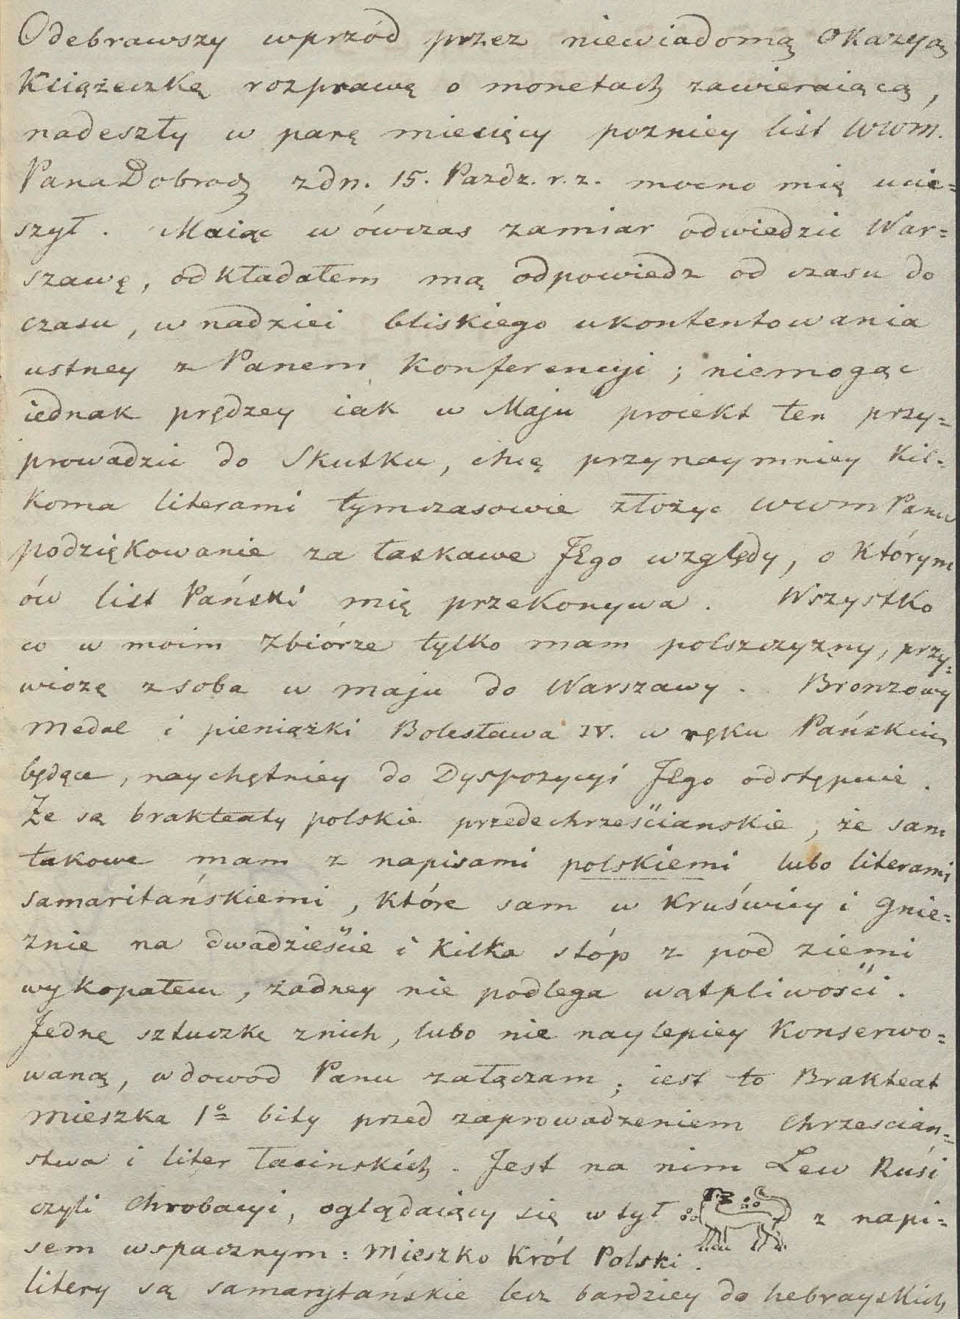 Odebrawszy wprzód przez niewiadomą Okazyą
Książeczkę rozprawę o monetach zawieraiącą,
nadeszły w parę miesięcy pozniey list Wwm.
Pana Dobrodz zdn. 15. Pazdz. r. z. mocno mię ucie=
szył. Maiąc w ówczas zamiar odwiedzic War=
szawę, odkładałem mą odpowiedz od czasu do
czasu, w nadziei bliskiego ukontentowania
ustney z Panem Konferencyi; niemogąc
iednak prędzey iak w Maju proiekt ten przy=
prowadzic do Skutku, chcę przynaymniey Kil=
Koma literami tymczasowie złożyc wwm Panu
podziękowanie za łaskawe JEgo względy, o Którym
ów list Pański mię przekonywa. Wszystko
co w moim Zbiórze tylko mam polszczyzny, przy=
wiozę z soba w maju do Warszawy. Bronzowy
Medal i pieniązki Bolesława IV. w ręku Pańskich
będące, naychętniey do Dyspozycyi JEgo odstępuie.
Że są brakteaty polskie przedechrześcianskie, że sam
takowe mam z napisami polskiemi lubo literami
samaritańskiemi, które sam w Kruświcy i Gnie=
znie na dwadzieście i Kilka stóp z pod ziemi
wykopałem, żadney nie podlega wątpliwości.
Jednę sztuczkę znich, lubo nie naylepiey Konserwo=
waną, wdowód Panu załączam; iest to Brakteat
Mieszka 1o bity przed zaprowadzeniem Chrzescian=
stwa i liter łacinskich. Jest na nim Lew Rusi
czyli Chrobacyi, oglądaiący się w tył z napi=
sem wspacznym: Mieszko Król Polski.
litery są samarytańskie lecz bardziey do hebrayskich